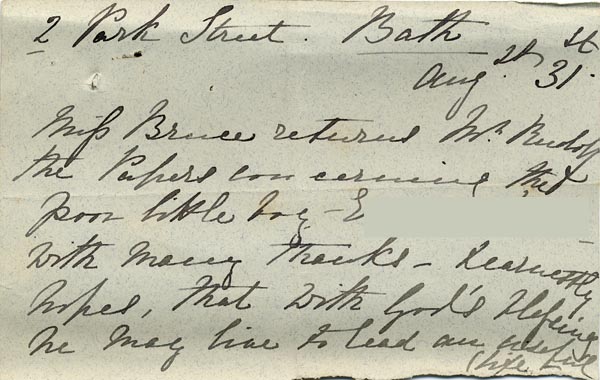 2 Park Street. Bath
Augst 31st.
Miss Bruce returns Mr. Rudolf
the Papers concerning the
poor little boy - E
with many thanks - & earnestly
hopes, that with God's blessing
he may live to lead an useful
(life